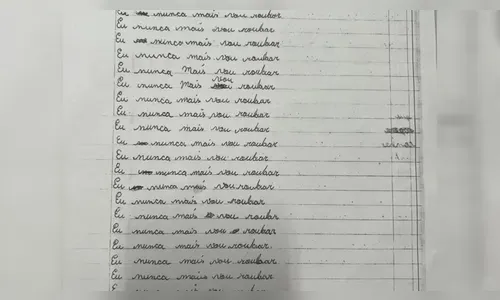 Eu nunca mais vou roubar
Eu nunca mais vou roubar
Eu nunca mais vou roubar
Eu nunca mais vou roubar
Eu nunca Mais vou roubar
Eu nunca Mais vou roubar
Eu nunca mais vou roubar
Eu nunca mais vou roubar
Eu nunca mais vou roubar
Eu nunca mais vou roubar
Eu nunca mais vou roubar
Eu nunca mais vou roubar
Eu nunca mais vou roubar
Eu nunca mais vou roubar
Eu nunca mais vou roubar
Eu nunca mais vou roubar
Eu nunca mais vou roubar.
Eu nunca mais vou roubaar
Eu nunca mais vou roubar